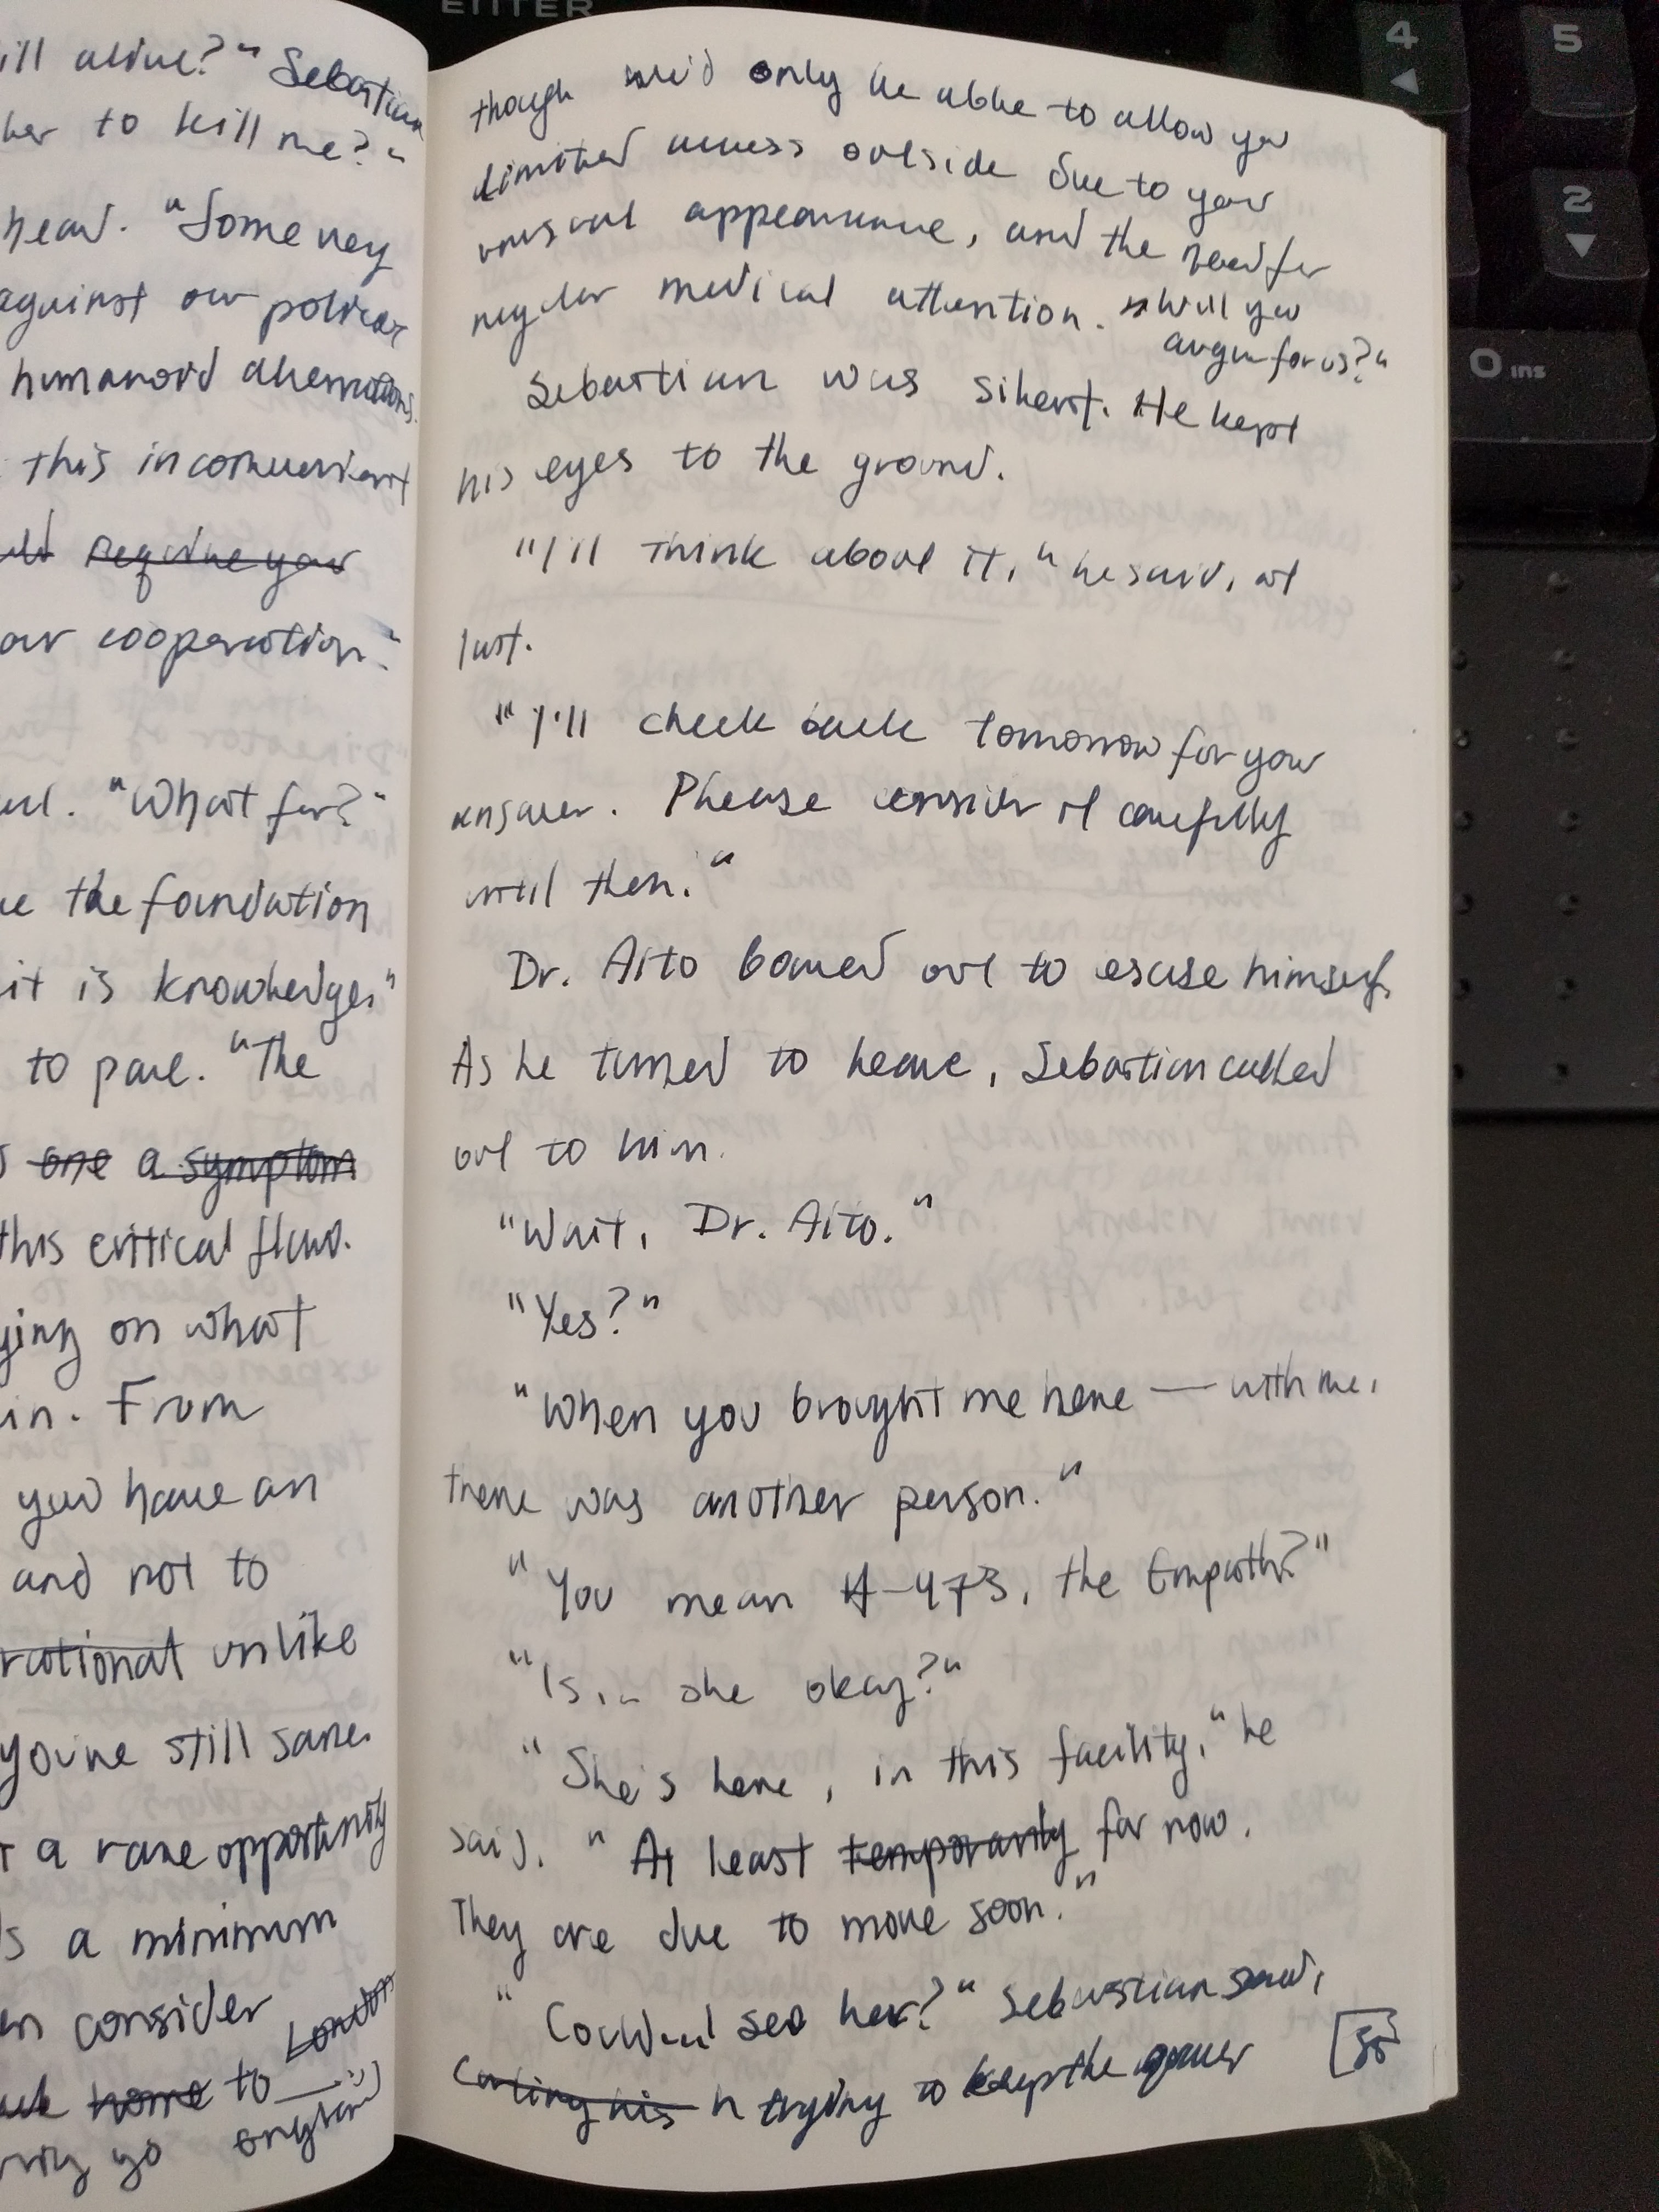 ENTER
4
5
2
0 ins
ill alive?" Sebastian
her to kill me?"
head. "Some very
against our policies
humanoid aberrations.
this inconvenient
require your
our cooperation."
"What for?"
the foundation
it is knowledge,"
to pace. "The
one a symptom
this critical flaw.
ying on what
in. From
you have an
and not to
rational unlike
you're still sane.
a rare opportunity
s a minimum
en consider
London
home to
go anywhere
though we'd only be able to allow you
limited access outside due to your
unusual appearance, and the need for
regular medical attention. Will you
argue for us?"
Sebastian was silent. He kept
his eyes to the ground.
"I'll think about it," he said, at
last.
"I'll check back tomorrow for your
answer. Please consider it carefully
until then."
Dr. Aito bowed out to escuse himself.
As he turned to leave, Sebastian called
out to him.
"Wait, Dr. Aito."
"Yes?"
"When you brought me here — with me,
there was another person."
"You mean A-473, the Empath?"
"Is... she okay?"
"She's here, in this facility," he
said. "At least temporarily for now.
They are due to move soon."
"Could I see her?" Sebastian said,
his trying to keep the